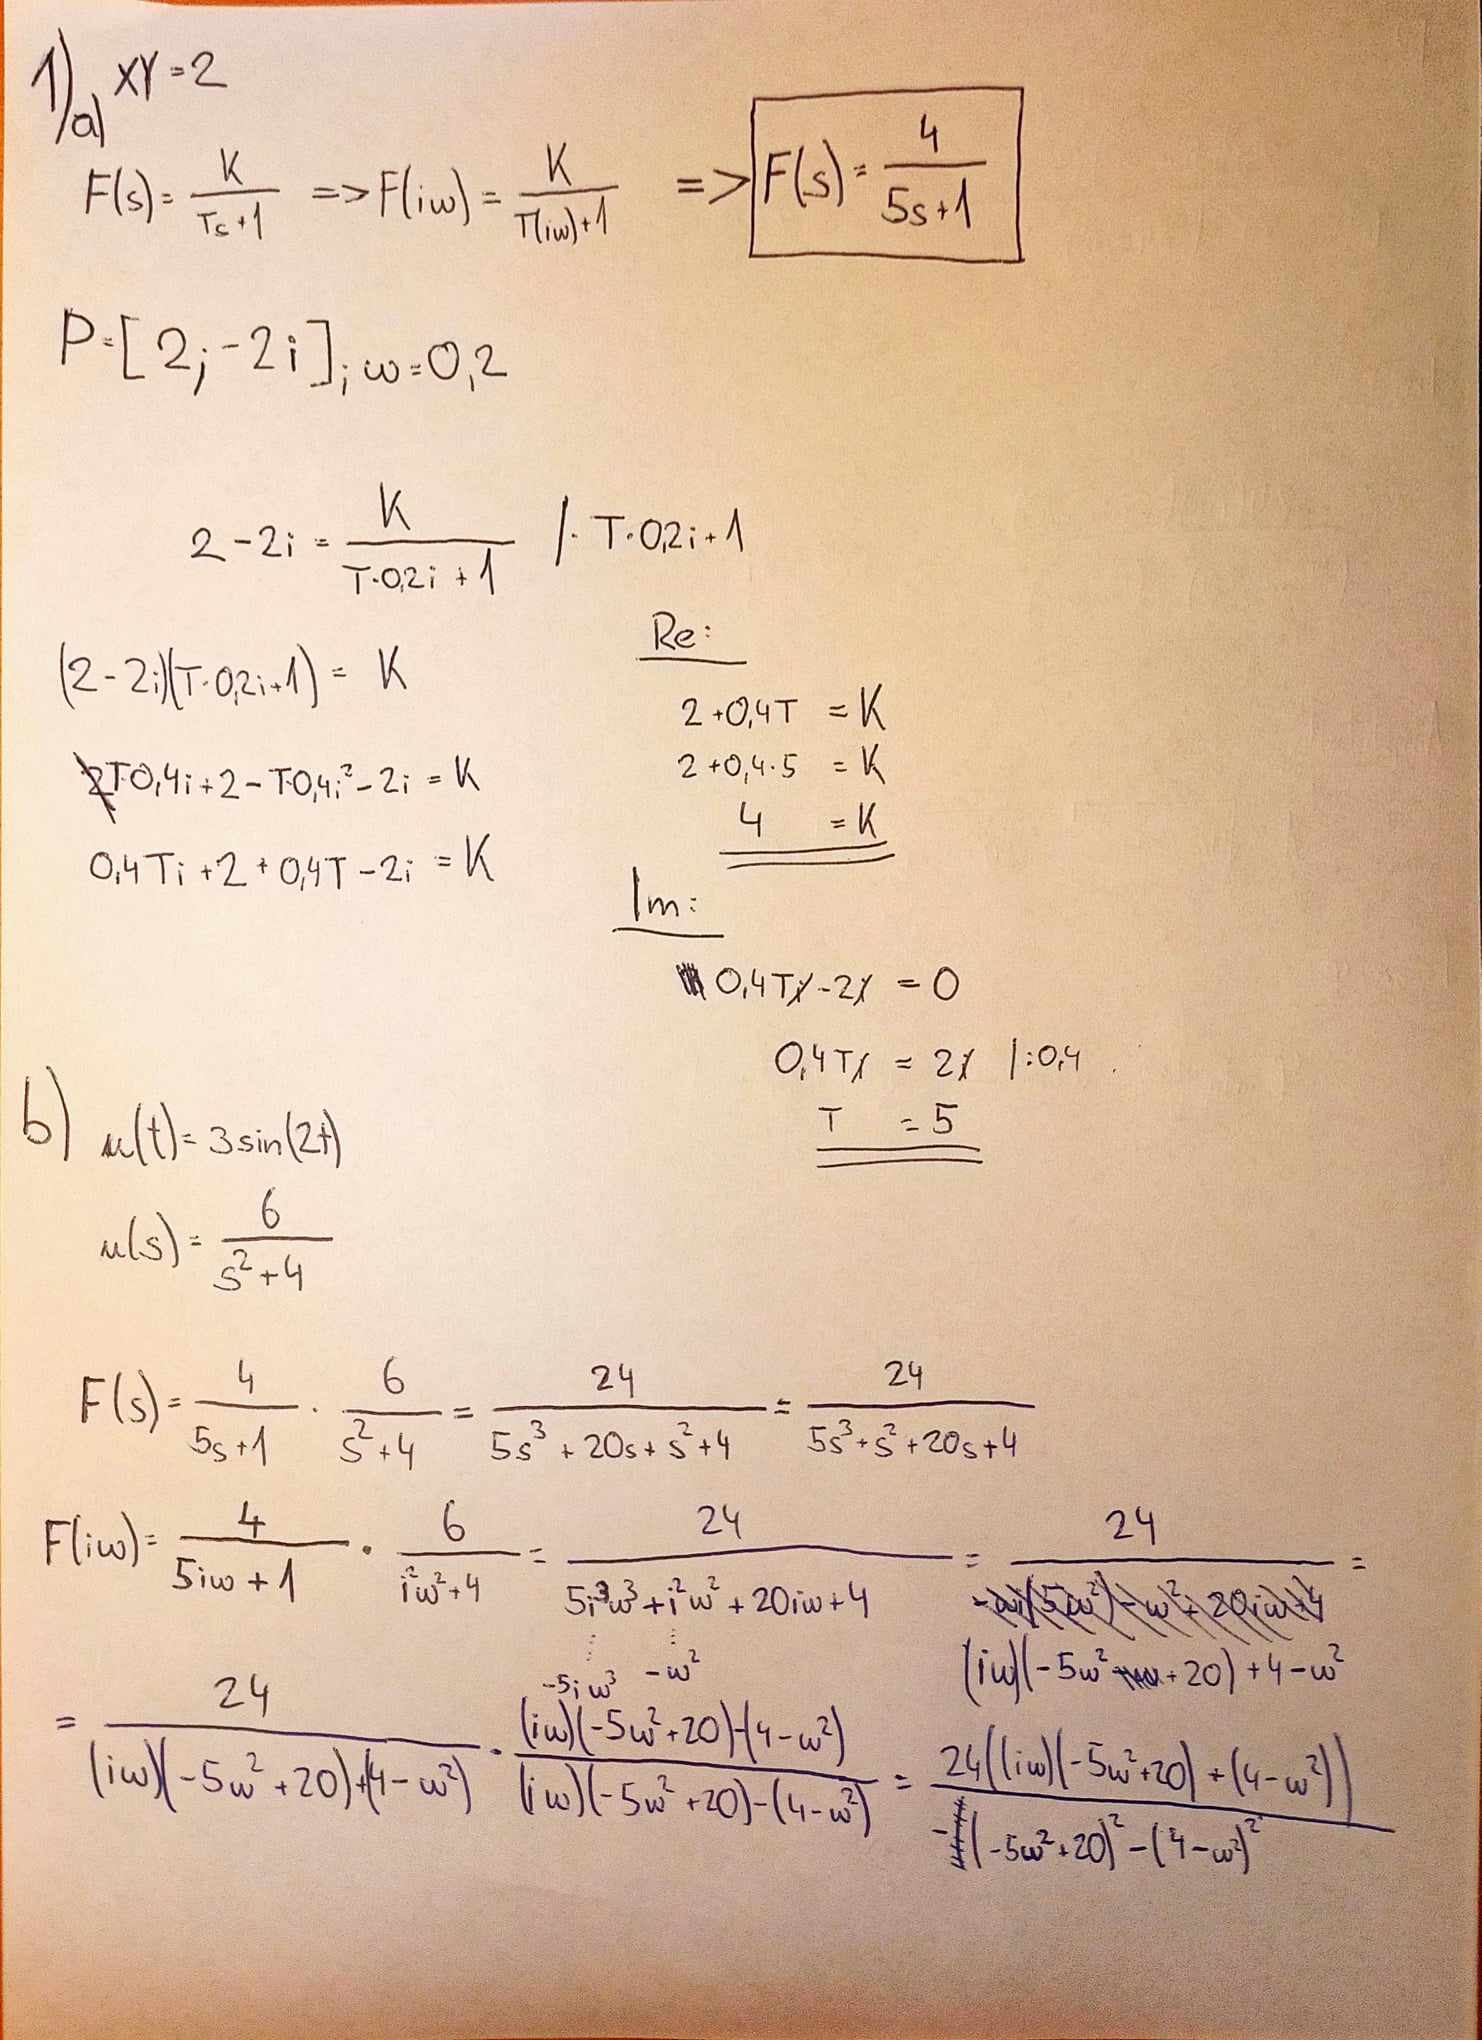 1) XY=2
a)
F(s) = K/(Ts+1) => F(iω) = K/(T(iω)+1) => F(s) = 4/(5s+1)
P=[2;-2i]; ω=0,2
2-2i = K/(T·0,2i+1) /· T·0,2i+1
(2-2i)(T·0,2i+1) = K
T0,4i+2-T·0,4i²-2i = K
0,4Ti+2+0,4T-2i = K
Re:
2+0,4T = K
2+0,4·5 = K
4 = K
Im:
0,4Ti-2i = 0
0,4Ti = 2i |:0,4
T = 5
b) u(t) = 3sin(2t)
u(s) = 6/(s²+4)
F(s) = 4/(5s+1) · 6/(s²+4) = 24/(5s³+20s+s²+4) = 24/(5s³+s²+20s+4)
F(iω) = 4/(5iω+1) · 6/(i²ω²+4) = 24/(5i³ω³+i²ω²+20iω+4) = 24/((iω)(-5ω²+20)+4-ω²) =
-5iω³ -ω²
= 24/((iω)(-5ω²+20)+(4-ω²)) · ((iω)(-5ω²+20)-(4-ω²))/((iω)(-5ω²+20)-(4-ω²)) = 24((iω)(-5ω²+20)+(4-ω²))/(-(-5ω²+20)²-(4-ω²)²)